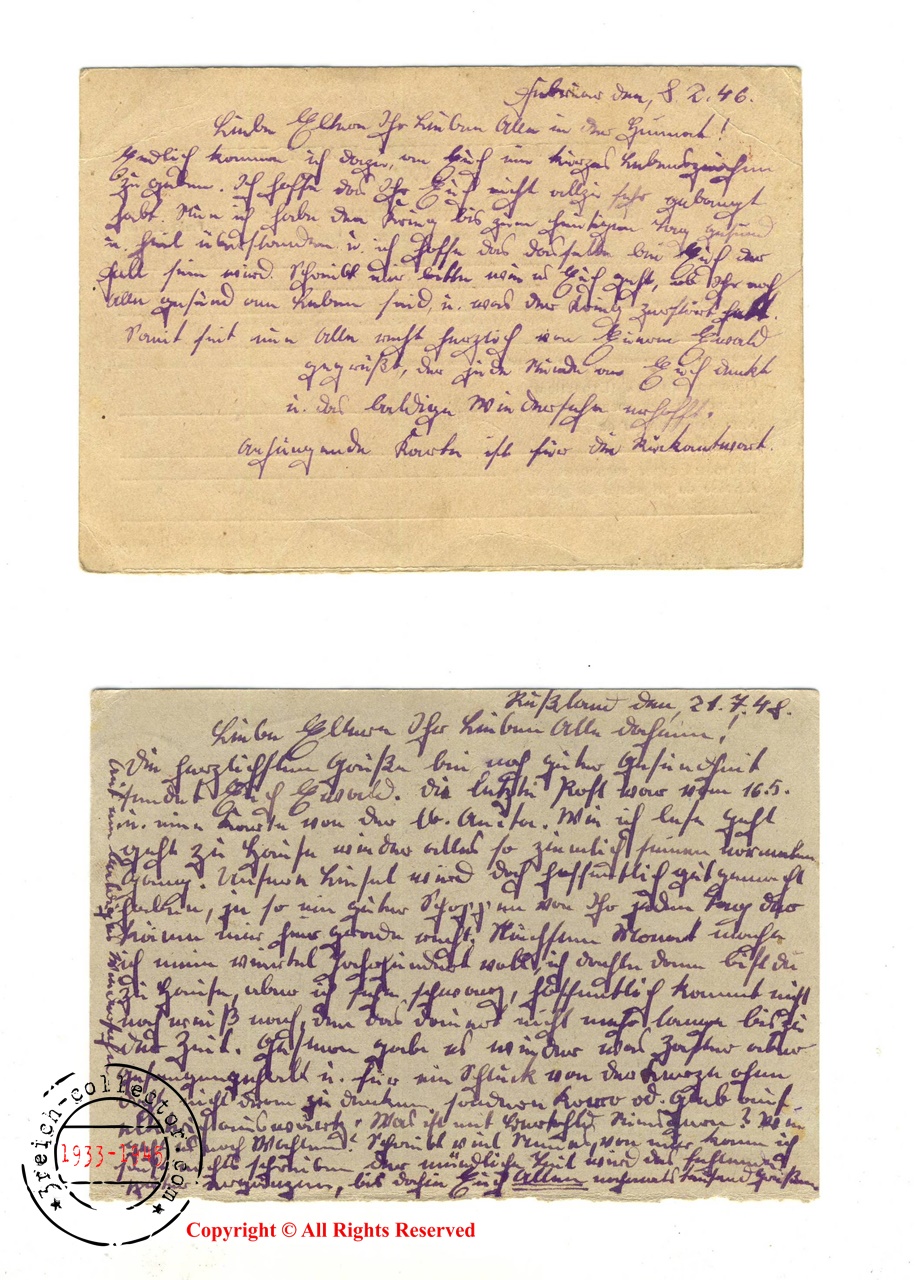 Februar den, 8.2.46.
Liebe Eltern Ihr Lieben Alle in der Heimat!
Endlich komme ich dazu, von Euch ein kurzes Lebenszeichen
zu geben. Ich hoffe das Ihr Euch nicht allzu sehr gebangt
habt. Nun ich habe den Krieg bis zum heutigen Tag gesund
u. heil überstanden u. ich hoffe das dasselbe bei Euch der
Fall sein wird. Schreibt mir bitte wie es Euch geht, ob Ihr noch
Alle gesund am Leben seid, u. was der Krieg zerstört hat.
Somit seit nun Alle recht herzlich von Eurem Ewald
gegrüßt, der jede Stunde an Euch denkt
u. das baldige Wiedersehn erhofft.
Anhängende Karte ist für die Rückantwort.
Rußland den, 21.7.48.
Liebe Eltern Ihr Lieben Alle daheim!
Die herzlichsten Grüße bei noch guter Gesundheit
sendet Euch Ewald. Die letzte Post war vom 16.5.
u. eine Karte von der Anita. Wie ich lese geht
geht zu Hause wieder alles so ziemlich seinen normalen
Gang. Unsere Liesel wird doch hoffentlich gut gemacht
haben, ja so ein guter Schoppen von Ihr jeden Tag der
käme mir hier gerade recht. Nächsten Monat mache
ich mein viertel Jahrhundert voll, ich dachte dann bist du
zu Hause, aber ich sehe schwarz, hoffentlich kommt nicht
noch weiß nach, denn das dauert nicht mehr lange bis zu
der Zeit. Gestern gabe es wieder was Zaster aber
u. für ein Stück von der Kerze ohne
nicht daran zu denken, sondern
auswärts. Was ist mit Berthold ? Wie
noch Schreibt viel Neues, von mir kann ich
nichts schreiben der mündliche Teil wird das fehlende
ergänzen, bis dahin Euch Allen nochmals tausend Grüße
Auf ein baldiges Wiedersehn
3reich-collector.com
1933-1945
Copyright © All Rights Reserved